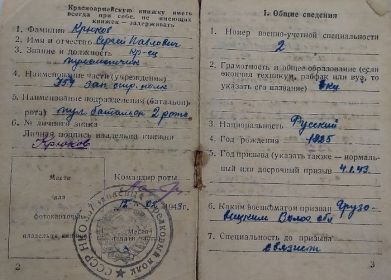 Красноармейскую книжку иметь
всегда при себе. не имеющих
книжек — задерживать.
1. Фамилия Крюков
2. Имя и отчество Сергей Павлович
3. Звание и должность кр-ец
4. Наименование части (учреждения)
зап. стр. полк
5. Наименование подразделения (батальон)
рота) пул. батальон 2 рота
6. № личного знака
Личная подпись владельца книжки
Крюков
Командир роты
Место
для
фотокарточки
владельца книжки
1943г.
2
I. Общие сведения
1. Номер военно-учетной специальности
2
2. Грамотность и общее образование (если
окончил техникум, рабфак или вуз, то
указать его название)
3. Национальность Русский
4. Год рождения 1925
5. Год призыва (указать также — нормаль-
ный или досрочный призыв 4.1.43.
6. Каким военкоматом призван
7. Специальность до призыва
связист
3